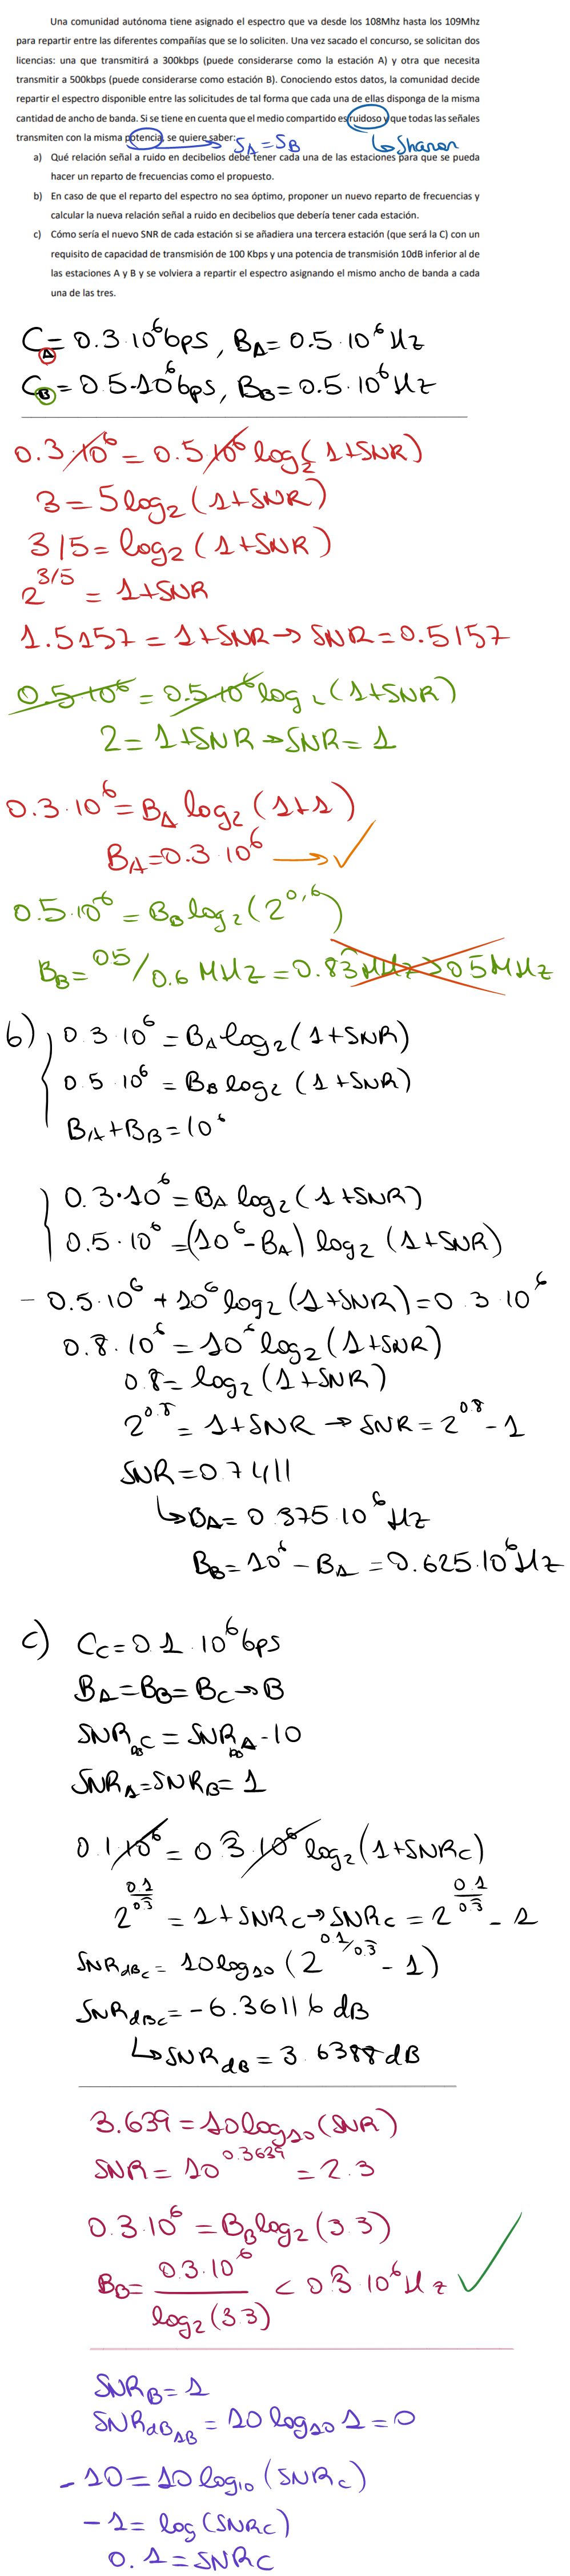 Una comunidad autónoma tiene asignado el espectro que va desde los 108Mhz hasta los 109Mhz
para repartir entre las diferentes compañías que se lo soliciten. Una vez sacado el concurso, se solicitan dos
licencias: una que transmitirá a 300kbps (puede considerarse como la estación A) y otra que necesita
transmitir a 500kbps (puede considerarse como estación B). Conociendo estos datos, la comunidad decide
repartir el espectro disponible entre las solicitudes de tal forma que cada una de ellas disponga de la misma
cantidad de ancho de banda. Si se tiene en cuenta que el medio compartido es ruidoso y que todas las señales
transmiten con la misma potencia, se quiere saber:
S_A = S_B
↳ Shanon
a) Qué relación señal a ruido en decibelios debe tener cada una de las estaciones para que se pueda
hacer un reparto de frecuencias como el propuesto.
b) En caso de que el reparto del espectro no sea óptimo, proponer un nuevo reparto de frecuencias y
calcular la nueva relación señal a ruido en decibelios que debería tener cada estación.
c) Cómo sería el nuevo SNR de cada estación si se añadiera una tercera estación (que será la C) con un
requisito de capacidad de transmisión de 100 Kbps y una potencia de transmisión 10dB inferior al de
las estaciones A y B y se volviera a repartir el espectro asignando el mismo ancho de banda a cada
una de las tres.
C_A = 0.3·10^6 bps, B_A = 0.5·10^6 Hz
C_B = 0.5·10^6 bps, B_B = 0.5·10^6 Hz
0.3·10^6 = 0.5·10^6 log_2(1+SNR)
3 = 5 log_2 (1+SNR)
3/5 = log_2 (1+SNR)
2^{3/5} = 1+SNR
1.5157 = 1+SNR → SNR = 0.5157
0.5·10^6 = 0.5·10^6 log_2 (1+SNR)
2 = 1+SNR → SNR = 1
0.3·10^6 = B_A log_2 (1+1)
B_A = 0.3·10^6 → ✓
0.5·10^6 = B_B log_2 (2^{0.6})
B_B = 0.5/0.6 MHz = 0.83 MHz > 0.5 MHz
b) { 0.3·10^6 = B_A log_2 (1+SNR)
0.5·10^6 = B_B log_2 (1+SNR)
B_A + B_B = 10^6
{ 0.3·10^6 = B_A log_2 (1+SNR)
0.5·10^6 = (10^6 - B_A) log_2 (1+SNR)
- 0.5·10^6 + 10^6 log_2 (1+SNR) = 0.3·10^6
0.8·10^6 = 10^6 log_2 (1+SNR)
0.8 = log_2 (1+SNR)
2^{0.8} = 1+SNR → SNR = 2^{0.8} - 1
SNR = 0.7411
↳ B_A = 0.375·10^6 Hz
B_B = 10^6 - B_A = 0.625·10^6 Hz
c) C_C = 0.1·10^6 bps
B_A = B_B = B_C → B
SNR_{dB C} = SNR_{dB A} - 10
SNR_A = SNR_B = 1
0.1·10^6 = 0.3̂·10^6 log_2 (1+SNR_C)
2^{0.1/0.3̂} = 1+SNR_C → SNR_C = 2^{0.1/0.3̂} - 1
SNR_{dB C} = 10 log_10 (2^{0.1/0.3̂} - 1)
SNR_{dB C} = -6.36116 dB
↳ SNR_{dB} = 3.6388 dB
3.639 = 10 log_10 (SNR)
SNR = 10^{0.3639} = 2.3
0.3·10^6 = B_B log_2 (3.3)
B_B = 0.3·10^6 / log_2 (3.3) < 0.3̂·10^6 Hz ✓
SNR_B = 1
SNR_{dB AB} = 10 log_10 1 = 0
-10 = 10 log_10 (SNR_C)
-1 = log (SNR_C)
0.1 = SNR_C